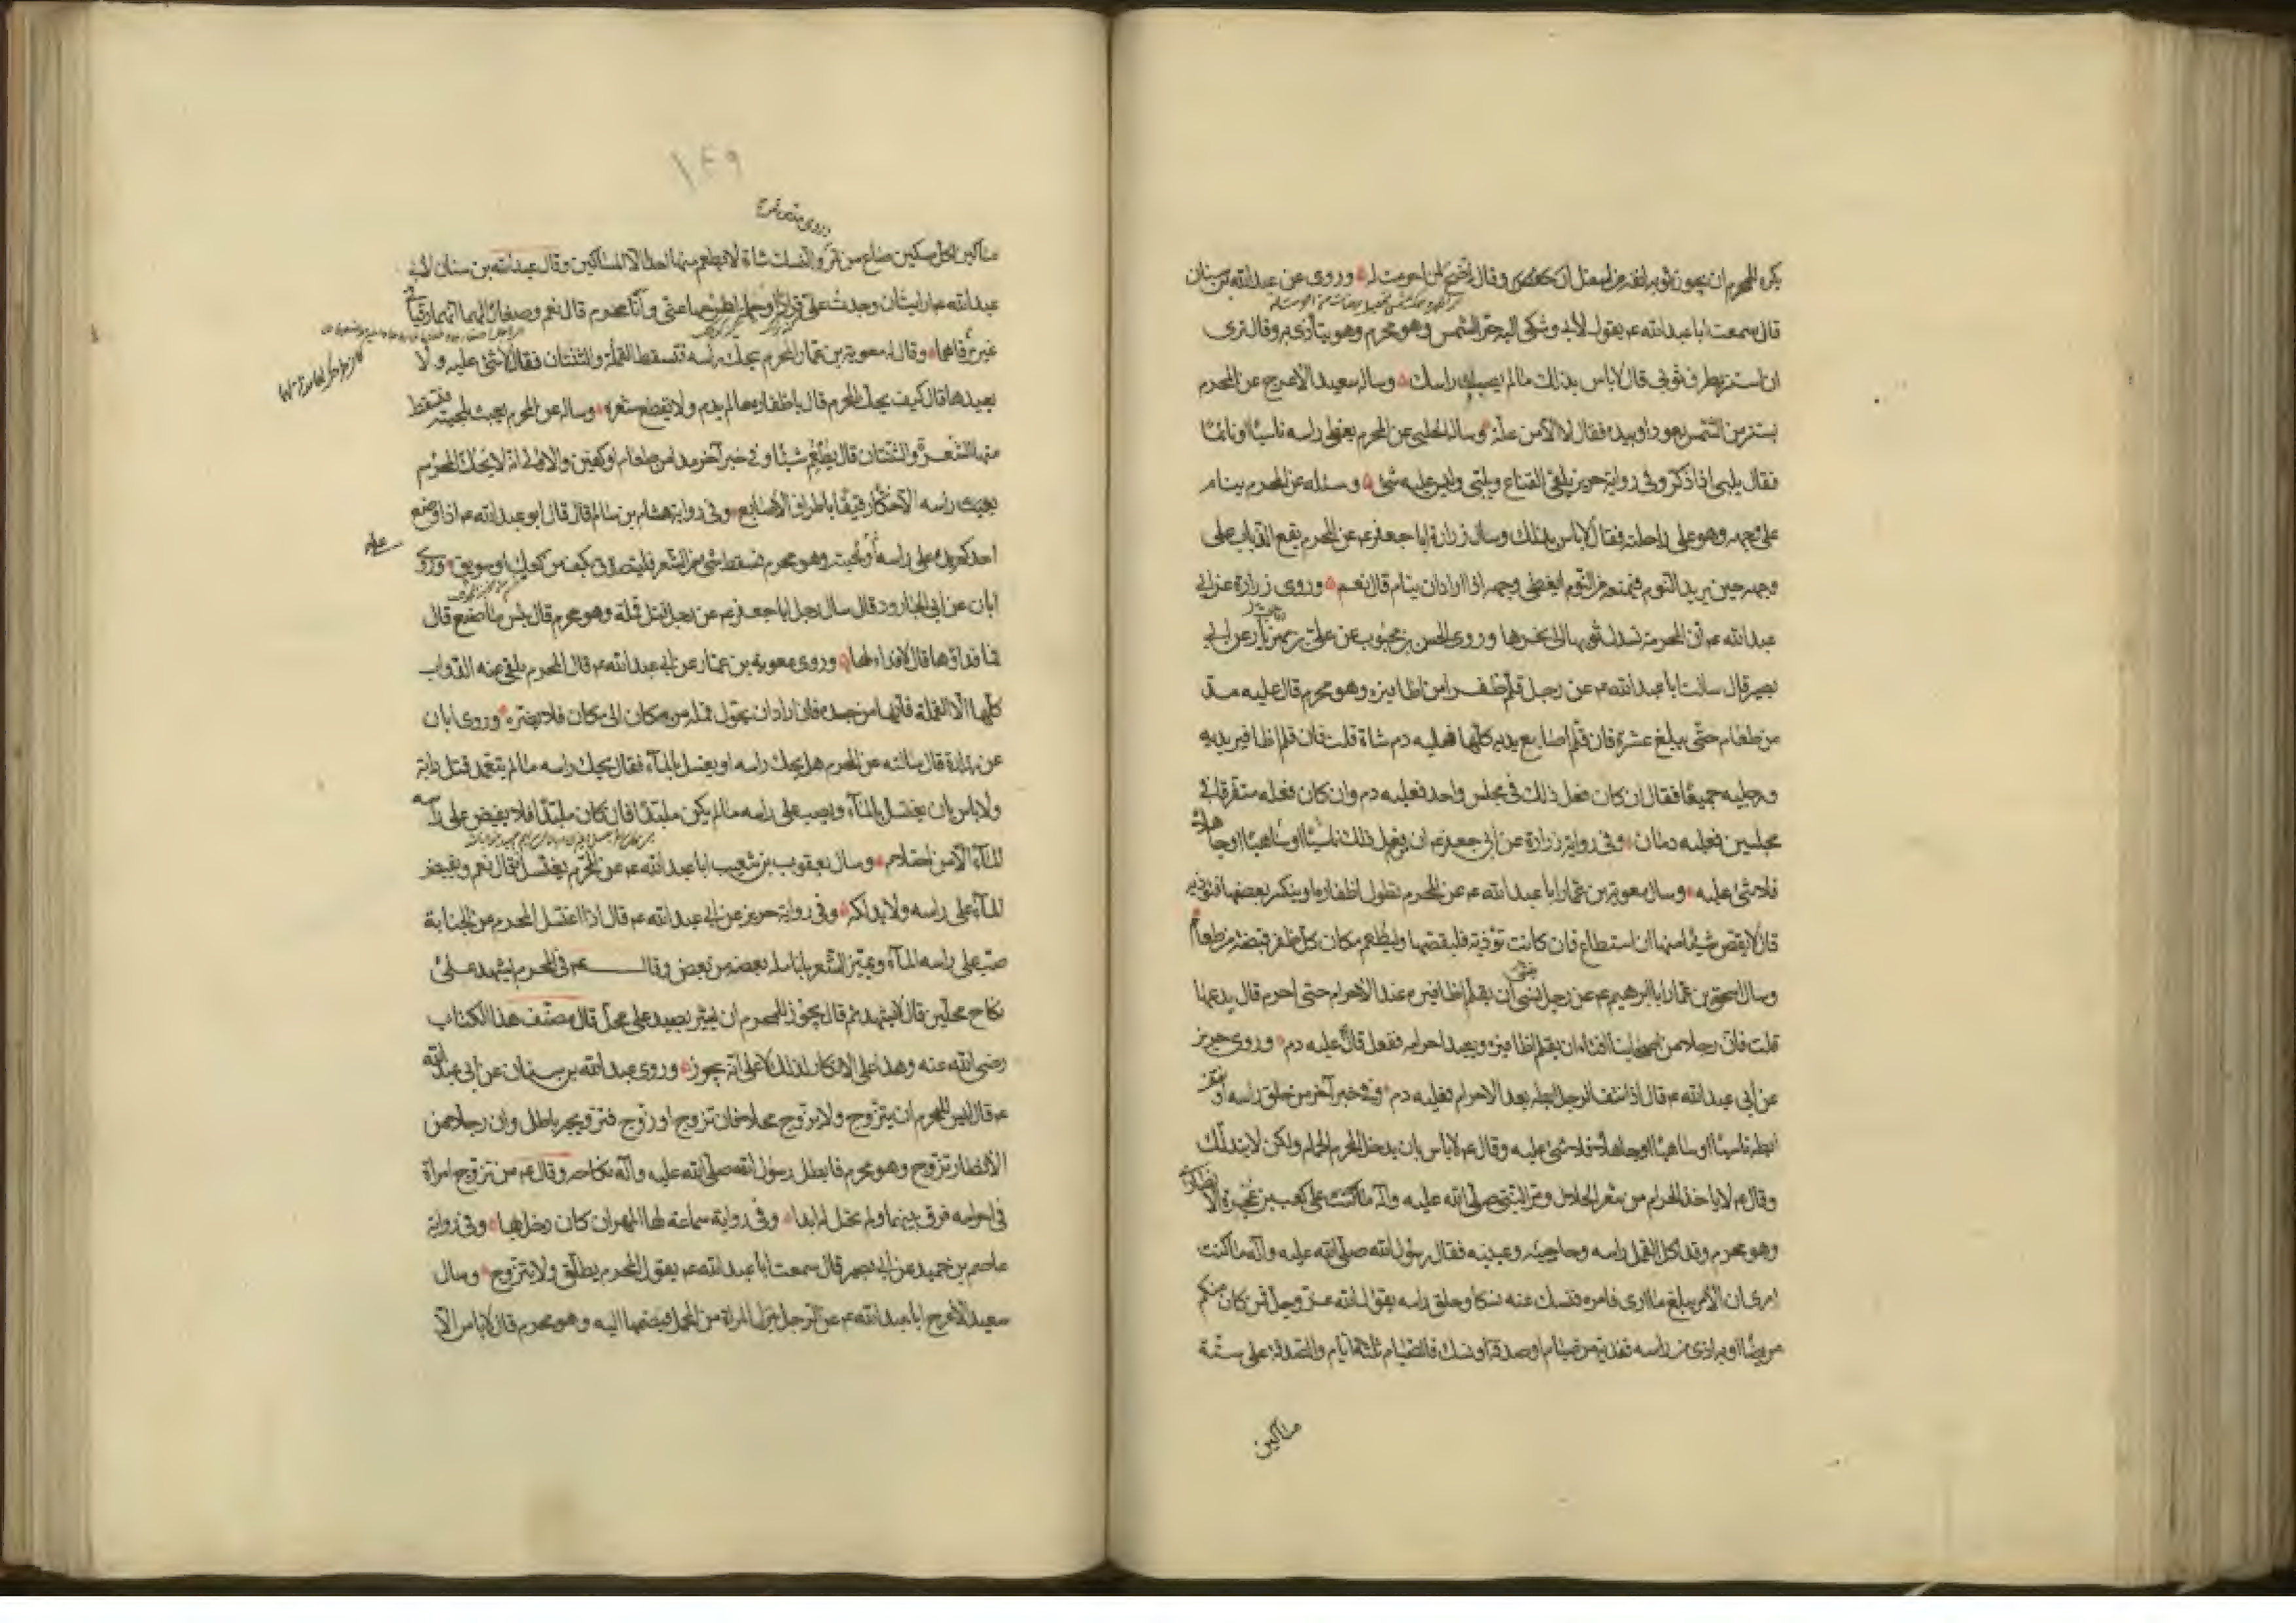 يكره للمحرم ان يجوز ثوبه انفه من اسفل وقال اضح لمن احرمت له وروى عن عبد الله بن سنان
قال سمعت ابا عبد الله ع يقول لابى وشكى اليه حر الشمس وهو محرم وهو يتأذى به وقال ترى
ان استتر بطرف ثوبى قال لا باس بذلك ما لم يصبك راسك وساله سعيد الاعرج عن المحرم
يستتر من الشمس بعود او بيده فقال لا الا من علة وساله الحلبى عن المحرم يغطى راسه ناسيا او نائما
فقال يلبى اذا ذكر وفى رواية حريز يلقى القناع ويلبى وليس عليه شئ وسئله عن المحرم ينام
على وجهه وهو على راحلته فقال لا باس بذلك وسال زرارة ابا جعفر ع عن المحرم يقع الذباب على
وجهه حين يريد النوم فيمنعه من النوم ايغطى وجهه اذا اراد ان ينام قال نعم وروى زرارة عن ابى
عبد الله ع ان المحرمة تسدل ثوبها الى نحرها وروى الحسن بن محبوب عن على بن عن ابى
بصير قال سالت ابا عبد الله ع عن رجل قلم ظفرا من اظافيره وهو محرم قال عليه مد
من طعام حتى يبلغ عشرة فان قلم اصابع يديه كلها فعليه دم شاة قلت فان قلم اظافير يديه
ورجليه جميعا فقال ان كان فعل ذلك فى مجلس واحد فعليه دم وان كان فعله متفرقا فى
مجلسين فعليه دمان وفى رواية زرارة عن ابى جعفر ع ان من فعل ذلك ناسيا او ساهيا او جاهلا
فلا شئ عليه وسال معوية بن عمار ابا عبد الله ع عن المحرم تطول اظفاره او ينكسر بعضها فتؤذيه
قال لا يقص شيئا منها ان استطاع فان كانت تؤذيه فليقصها وليطعم مكان كل ظفر قبضة من طعام
وسال اسحق بن عمار ابا ابرهيم ع عن رجل نسى ان يقلم اظافيره عند الاحرام حتى احرم قال يدعها
قلت فان رجلا من اصحابنا افتاه ان يقلم اظافيره ويعيد احرامه ففعل قال عليه دم وروى حريز
عن ابى عبد الله ع قال اذا نتف الرجل ابطه بعد الاحرام فعليه دم وفى خبر آخر من حلق راسه او نتف
ابطه ناسيا او ساهيا او جاهلا فلا شئ عليه وقال ع لا باس بان يدخل المحرم الحمام ولكن لا يتدلك
وقال ع لا ياخذ الحرام من شعر الحلال ومر النبى صلى الله عليه وآله على كعب بن عجرة الانصارى
وهو محرم وقد اكل القمل راسه وحاجبيه وعينيه فقال رسول الله صلى الله عليه وآله ما كنت
ارى ان الامر يبلغ ما ارى فامره فنسك عنه نسكا وحلق راسه يقول الله عز وجل فمن كان منكم
مريضا او به اذى من راسه ففدية من صيام او صدقة او نسك فالصيام ثلثة ايام والصدقة على ستة
مساكين
١٤٩
مساكين لكل مسكين صاع من تمر والنسك شاة لا يطعم منها احدا الا المساكين وقال عبد الله بن سنان لابى
عبد الله ع ارايت ان وجدت على قرادا او حلمة اطرحهما عنى وانا محرم قال نعم وصغار لهما انهما رقيا
فى غير مرقاهما وقال له معوية بن عمار المحرم يحك راسه فتسقط القملة والثنتان فقال لا شئ عليه ولا
يعيدها قال كيف يحك المحرم قال باظفاره ما لم يدم ولا يقطع شعره وساله عن المحرم يعبث بلحيته فتسقط
منها الشعرة والثنتان قال يطعم شيئا وفى خبر آخر مد من طعام او كفين والاولى انه لا يحك المحرم
راسه الا حكا رفيقا باطراف الاصابع وفى رواية هشام بن سالم قال قال ابو عبد الله ع اذا وضع
احدكم يده على راسه او لحيته وهو محرم فسقط شئ من الشعر فليتصدق بكف من كعك او سويق وروى
ابان عن ابى الجارود قال سال رجل ابا جعفر ع عن رجل قتل قملة وهو محرم قال بئس ما صنع قال
فما فداؤها قال لا فداء لها وروى معوية بن عمار عن ابى عبد الله ع قال المحرم يلقى عنه الدواب
كلها الا القملة فانها من جسده فان اراد ان يحول قملة من مكان الى مكان فلا يضره وروى ابان
عن زرارة قال سالته عن المحرم هل يحك راسه او يغتسل بالمآء فقال يحك راسه ما لم يتعمد قتل دابة
ولا باس بان يغتسل بالمآء ويصب على راسه ما لم يكن ملبدا فان كان ملبدا فلا يفيض على راسه
المآء الا من احتلام وسال يعقوب بن شعيب ابا عبد الله ع عن المحرم يغتسل فقال نعم ويفيض
المآء على راسه ولا يدلكه وفى رواية حريز عن ابى عبد الله ع قال اذا اغتسل المحرم من الجنابة
صب على راسه المآء ويميز الشعر بانامله بعضه من بعض وقال ع فى المحرم يشهد على
نكاح محلين قال لا يشهد ثم قال يجوز للمحرم ان يشير بصيد على محل قال مصنف هذا الكتاب
رضى الله عنه وهذا على الانكار لذلك لا على انه يجوز وروى عبد الله بن سنان عن ابى عبد الله
ع قال ليس للمحرم ان يتزوج ولا يزوج محلا فان تزوج او زوج فتزويجه باطل وان رجلا من
الانصار تزوج وهو محرم فابطل رسول الله صلى الله عليه وآله نكاحه وقال ع من تزوج امراة
فى احرامه فرق بينهما ولم تحل له ابدا وفى رواية سماعة لها المهر ان كان دخل بها وفى رواية
عاصم بن حميد عن ابى بصير قال سمعت ابا عبد الله ع يقول المحرم يطلق ولا يتزوج وسال
سعيد الاعرج ابا عبد الله ع عن الرجل ينزل المراة من المحمل فيضمها اليه وهو محرم قال لا باس الا